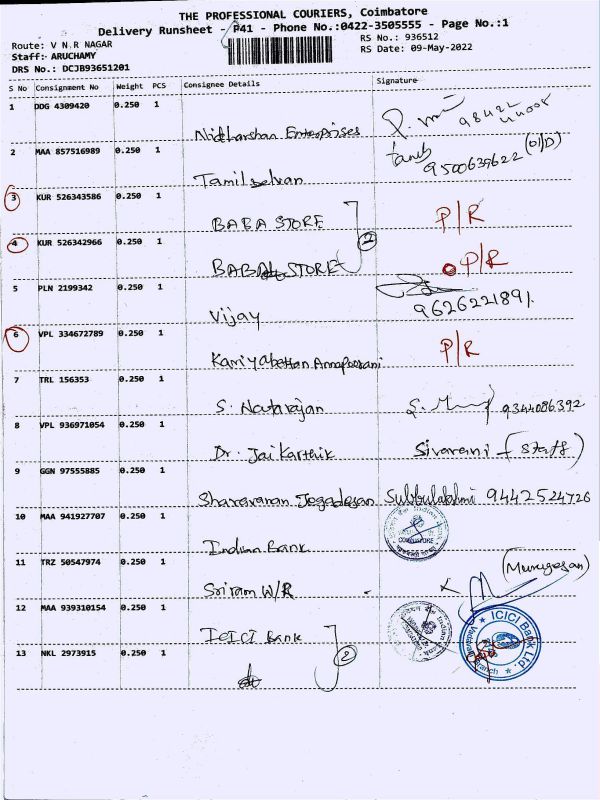 THE PROFESSIONAL COURIERS, Coimbatore
Delivery Runsheet - P41 - Phone No.:0422-3505555 - Page No.:1
Route: V N.R NAGAR
RS No.: 936512
Staff: ARUCHAMY
RS Date: 09-May-2022
DRS No.: DCJB93651201
S No Consignment No Weight PCS Consignee Details Signature
1 DDG 4309420 0.250 1
Nidharshan Enterprises 98422
2 MAA 857516989 0.250 1
Tamilselvan 9500639622 (OID)
3 KUR 526343586 0.250 1
BABA STORE P/R
4 KUR 526342966 0.250 1 2
BABA STORE P/R
5 PLN 2199342 0.250 1
Vijay 9626221891.
6 VPL 334672789 0.250 1
P/R
7 TRL 156353 0.250 1
S. Natarajan 9344086392
8 VPL 936971054 0.250 1
Dr. Jai Karthik Sivarani (Staff)
9 GGN 97555885 0.250 1
Sharavanan Jegadesan Subbulakshmi 9442524726
10 MAA 941927707 0.250 1
Indian Bank
COIMBATORE
11 TRZ 50547974 0.250 1
Sriram W/R (Murugesan)
12 MAA 939310154 0.250 1
ICICI Bank
ICICI Bank Ltd.
Branch
13 NKL 2973915 0.250 1 2